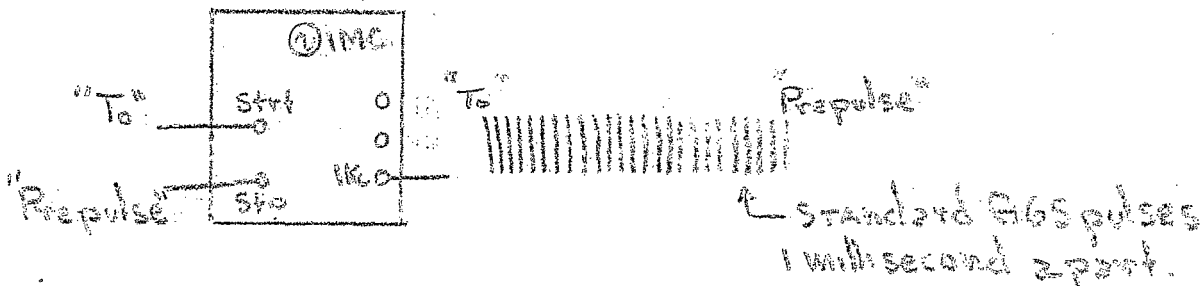 ② 1MC
"To"
Strt
"To"
"Prepulse"
1Kc
"Prepulse"
Sto
Standard G65 pulses
1 millisecond apart.